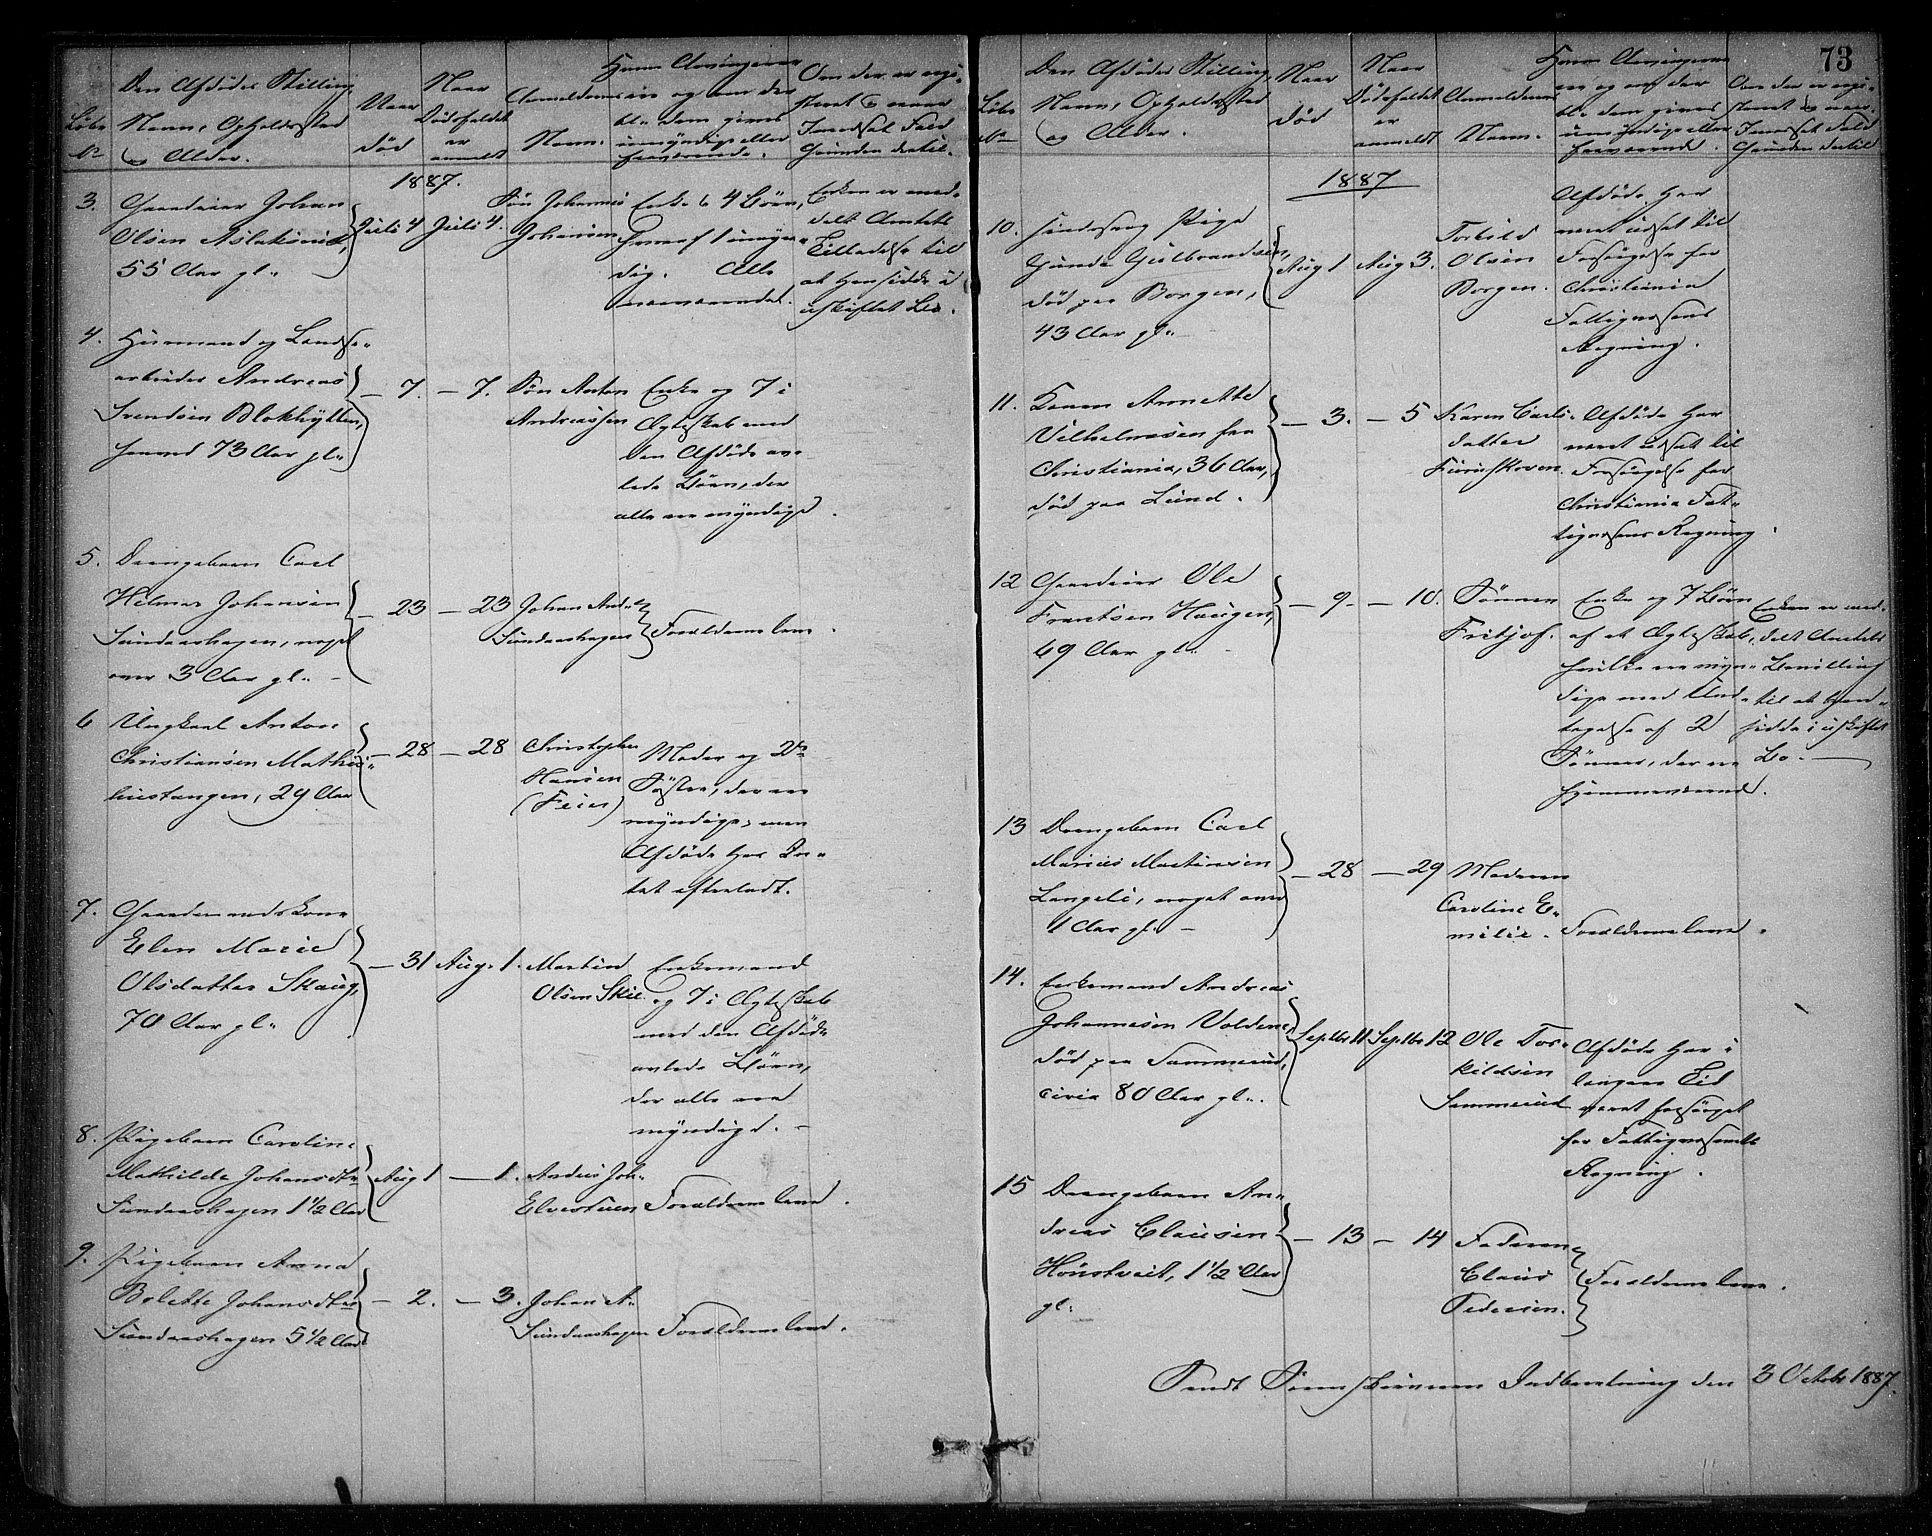 Löbe
No
Den Afdödes Stilling
Navn, Opholdssted
og Alder.
Naar
död
Naar
Dödsfaldet
er
anmeldt
Anmelderens
Navn.
og om der
bl. dem gives
umyndige eller
fraværende.
Om der er
Imodsat Fald
Grunden dertil.
1887.
3. Gaardeier Johan
Olsen
55 Aar gl.
Juli 4 Juli 4.
Sön Johannes
Johansen
Enke & 4 Börn,
hvoraf 1 umyn-
dig. Alle
nærværende.
Enken er med-
delt Amtets
Tilladelse til
at hensidde i
uskiftet Bo.
4. Husmand og Lands-
arbeider Andreas
Svendsen Blokhytten,
73 Aar gl.
— 7. — 7.
Sön Anton
Andreassen
Enke og 7 i
Ægteskab med
den Afdöde av-
lede Börn, der
alle ere myndige.
5. Drengebarn Carl
Hilmar Johansen
Sundaashagen, noget
over 3 Aar gl. —
— 23 — 23
Johan And.
Sundaashagen
Forældrene leve.
6 Ungkarl Anton
Christiansen
29 Aar
— 28 — 28
Christopher
Hansen
(Feier)
Moder og 2de
Söstre, der ere
myndige; men
Afdöde har In-
tet efterladt.
7. Gaardmandskone
Elen Marie
Olsdatter Skaug,
70 Aar gl.
— 31 Aug. 1.
Martin
Olsen Skie
Enkemand
og 7 i Ægteskab
med den Afdöde
avlede Börn,
der alle ere
myndige. —
8. Pigebarn Caroline
Mathilde Johansdtr
Sundaashagen 1½ Aar
Aug 1 — 1.
Andreas Joh.
Elvestuen
Forældrene leve.
9. Pigebarn Anna
Bolette Johansdtr
Sundaashagen 5½ Aar
— 2. — 3.
Johan A.
Sundaashagen
Forældrene leve.
73
Löbe
No
Den Afdödes Stilling,
Navn, Opholdssted
og Alder.
Naar
död
Naar
Dödsfaldet
er
anmeldt
Anmelderens
Navn.
og om der
bl. dem gives
umyndige eller
fraværende.
Om der er
Imodsat Fald
Grunden dertil
1887
10. Sindssyg Pige
Gunda Gulbrandsen,
död paa Borgen,
43 Aar gl.
Aug 1 Aug 3.
Torkild
Olsen
Borgen.
Afdöde har
været udsat til
Forsörgelse for
Christiania
Fattigvæsens
Regning.
11. Konen Annette
Vilhelmsen fra
Christiania, 36 Aar,
död paa Lund.
— 3. — 5
Karen Carls-
datter
Afdöde har
været udsat til
Forsörgelse for
Christiania Fat-
tigvæsens Regning.
12 Gaardeier Ole
Frantsen Haugen,
69 Aar gl. —
— 9. — 10.
Sönnen
Fritjof.
Enke og 7 Börn
af et Ægteskab,
hvilke ere myn-
dige med Und-
tagelse af 2
Sönner, der ere
hjemmeværende.
Enken er med-
delt Amtets
Bevilling
til at hen-
sidde i uskiftet
Bo. —
13 Drengebarn Carl
Marius Martinsen
Langeli, noget over
1 Aar gl. —
— 28 — 29
Moderen
Caroline E-
milie.
Forældrene leve.
14. Enkemand Andreas
Johannesen Volden,
död paa Sammerud,
circa 80 Aar gl.
Septbr 11 Septbr 12
Ole Tor-
kildsen
Sammerud
Afdöde har i
længere Tid
været forsörget
for Fattigvæsenets
Regning.
15 Drengebarn An-
dreas Clausen
1½ Aar
gl.
— 13 — 14
Faderen
Claus
Pedersen.
Forældrene leve.
Sendt Sorenskriveren Indberetning den 3 Octobr 1887.